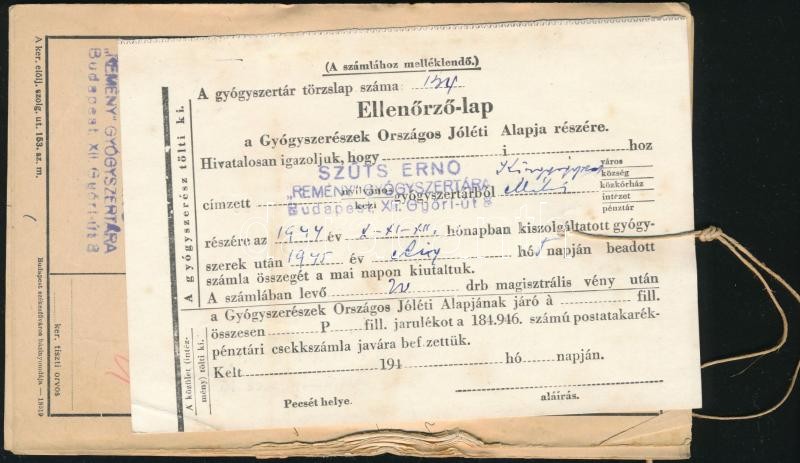 (A számlához melléklendő.)
A gyógyszertár törzslap száma:
Ellenőrző-lap
a Gyógyszerészek Országos Jóléti Alapja részére.
Hivatalosan igazoljuk, hogy i hoz
SZÜTS ERNŐ
város
község
„REMÉNY" GYÓGYSZERTÁRA
címzett nyilvános gyógyszertárból közkórház
kézi
Budapest, XII. Győri-út 8
intézet
pénztár
részére az 1944 év X-XI-XII. hónapban kiszolgáltatott gyógy-
szerek után 1945 év hó napján beadott
számla összegét a mai napon kiutaltuk.
A számlában levő drb magisztrális vény után
a Gyógyszerészek Országos Jóléti Alapjának járó à fill.
összesen P fill. jarulékot a 184.946. számú postatakarék-
pénztári csekkszámla javára befizettük.
Kelt 194 hó napján.
Pecsét helye.
aláírás.
A gyógyszerész tölti ki.
A közület (intéz-
mény) tölti ki.
A ker. elölj. szolg. ut. 153. sz. m.
„REMÉNY" GYÓGYSZERTÁRA
Budapest XII Győri-út 8
ker. tiszti orvos
Budapest székesfőváros házinyomdája —